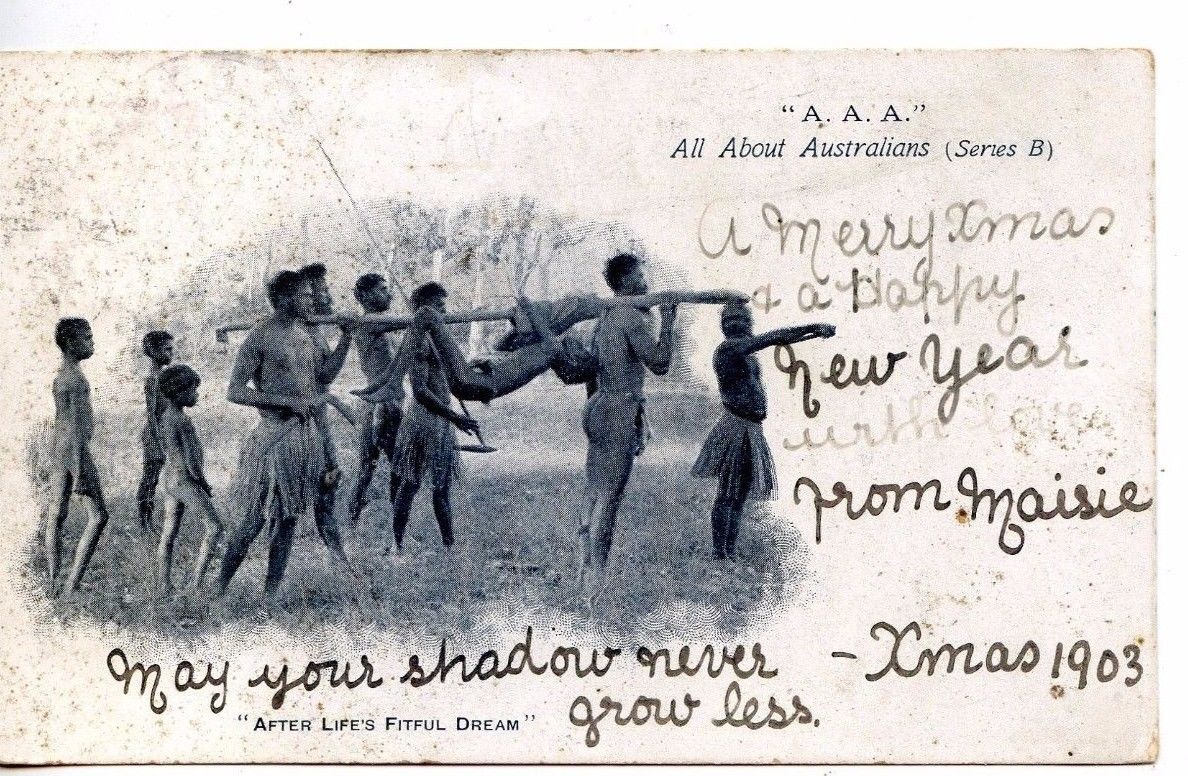 "A. A. A."
All About Australians (Series B)
A Merry Xmas
+ a Happy
New Year
with love
from Maisie
- Xmas 1903
May your shadow never
grow less.
"AFTER LIFE'S FITFUL DREAM"